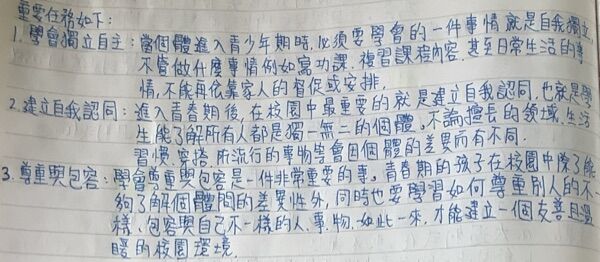 重要任務如下：
1. 學會獨立自主：當個體進入青少年期時，必須要學會的一件事情就是自我獨立，
不管做什麼事情例如寫功課、複習課程內容，甚至日常生活的事
情，不能再依靠家人的督促或安排．
2. 建立自我認同：進入青春期後，在校園中最重要的就是建立自我認同，也就是學
生能了解所有人都是獨一無二的個體。不論擅長的領域、生活
習慣、穿搭、所流行的事物皆會因個體的差異而有不同．
3. 尊重與包容：學會尊重與包容是一件非常重要的事。青春期的孩子在校園中除了能
夠了解個體間的差異性外，同時也要學習如何尊重別人的不一
樣、包容與自己不一樣的人、事、物．如此一來，才能建立一個友善且溫
暖的校園環境．